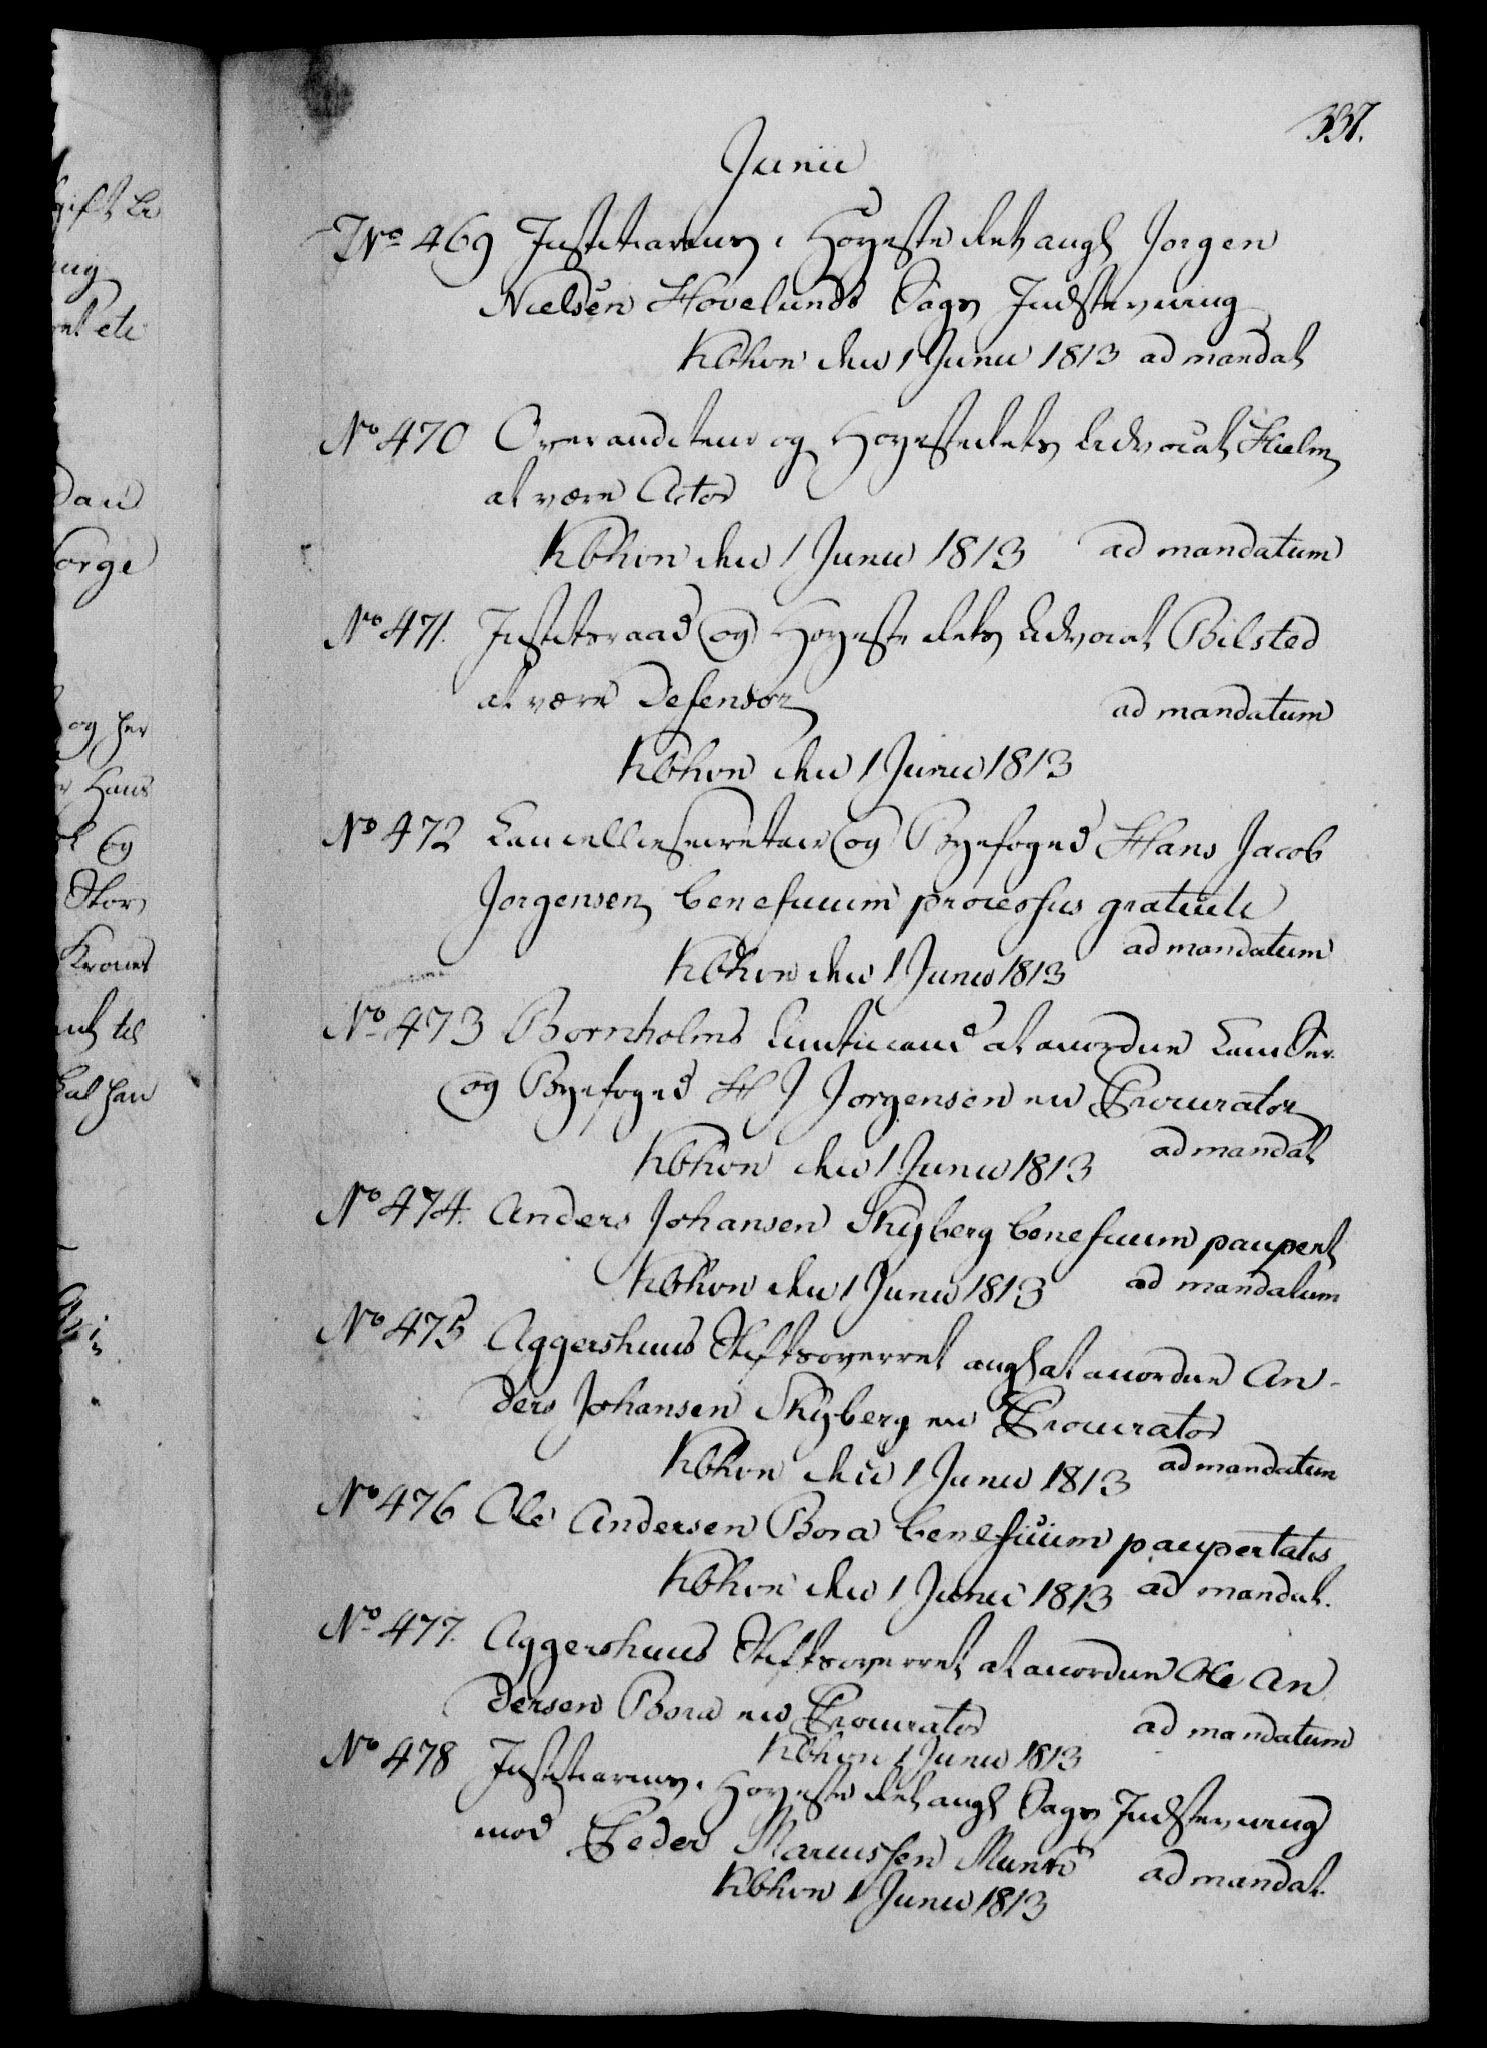 337.
Junii
No 469 Justitiarius i Høyeste Ret angl Jorgen
Nielsen Hovelunds Sags Indstevning
Kbhvn den 1 Junii 1813 ad mandat
No 470 Overauditeur og Høyesterets Advocat Hielm
at være Actor
Kbhvn den 1 Junii 1813 ad mandatum
No 471. Justitsraad og Høyeste Rets Advocat Bilsted
at være Defensor
ad mandatum
Kbhvn den 1 Junii 1813
No 472 Cancelliesecretair og Byefoged Hans Jacob
Jorgensen beneficium processus gratuiti
ad mandatum
Kbhvn den 1 Junii 1813
No 473 Bornholms Amtmand at anordne Canc Secr.
og Byefoged H J Jorgensen en Procurator
ad mandat
Kbhvn den 1 Junii 1813
No 474. Anders Johansen Skyberg beneficium paupert
Kbhvn den 1 Junii 1813 ad mandatum
No 475 Aggershuus Stiftsoverret angl at anordne An-
ders Johansen Skyberg en Procurator
Kbhvn den 1 Junii 1813 ad mandatum
No 476 Ole Andersen Bora beneficium paupertatis
Kbhvn den 1 Junii 1813 ad mandat.
No 477. Aggershuus Stiftsoverret at anordne Ole An
dersen Bora en Procurator
ad mandatum
Kbhvn 1 Junii 1813
No 478 Justitiarius i Høyeste Ret angl Sags Indstevning
mod Peder Marcussen Munke ad mandat.
Kbhvn 1 Junii 1813